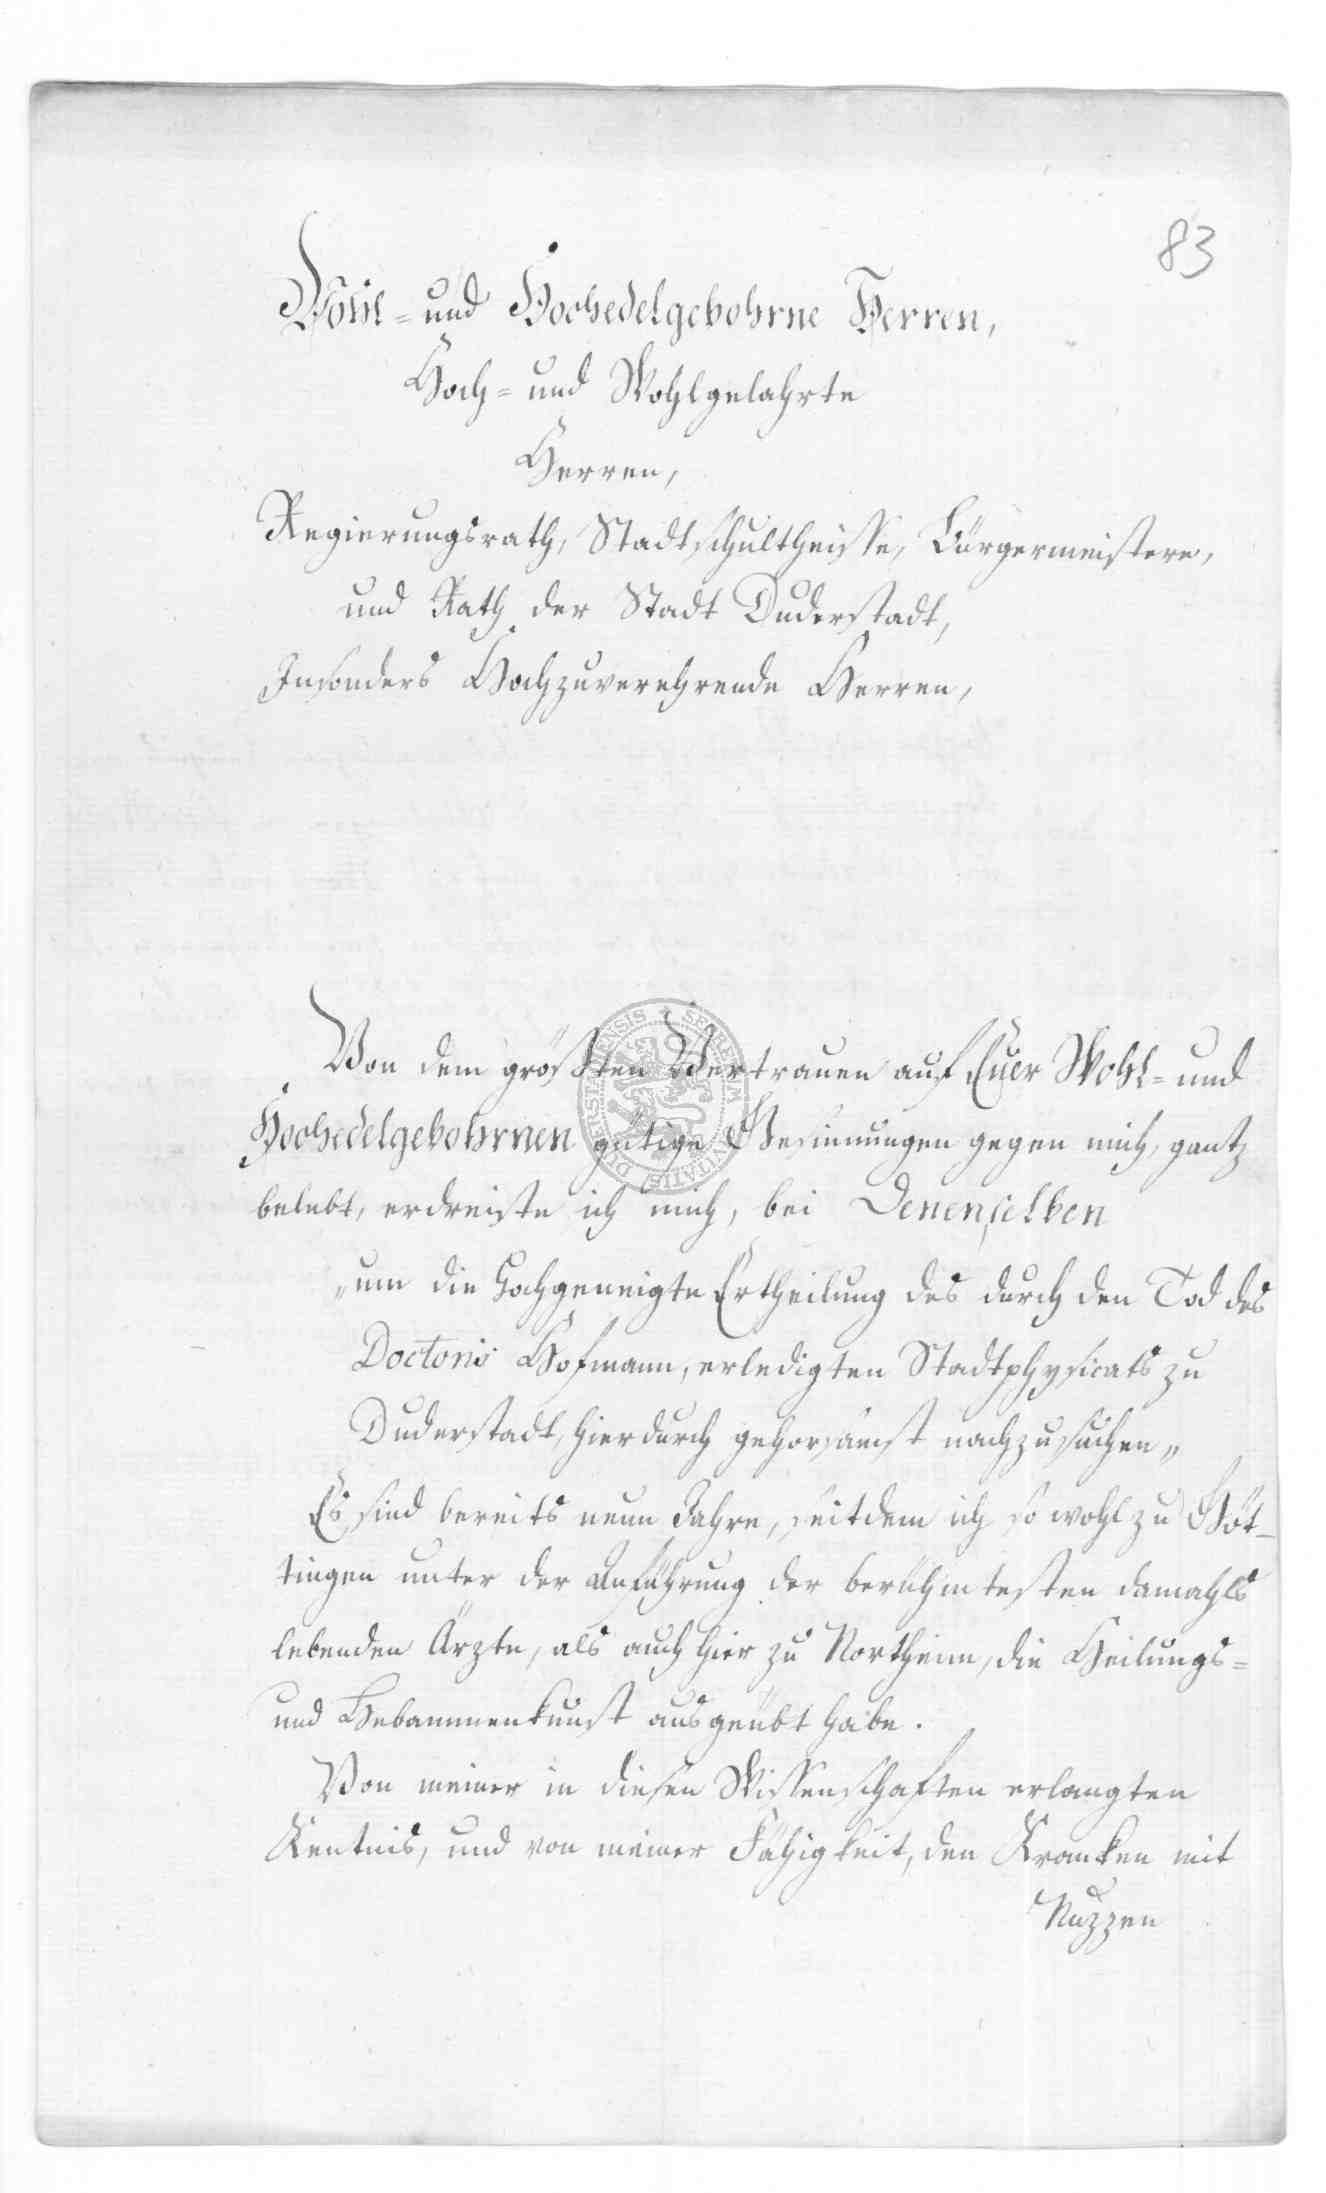 83
Wohl- und Hochedelgebohrne Herren,
Hoch- und Wohlgelahrte
Herren,
Regierungsrath, Stadtschultheisse, Bürgermeistere,
und Rath der Stadt Duderstadt,
Insonders Hochzuverehrende Herren,
Von dem größten Vertrauen auf Euer Wohl- und
Hochedelgebohrnen gütige Gesinnungen gegen mich, gantz
belebt, erdreiste ich mich, bei Denenselben
„um die Hochgeneigte Ertheilung des durch den Tod des
Doctoris Hofmann, erledigten Stadtphysicats zu
Duderstadt, hierdurch gehorsamst nachzusuchen„
Es sind bereits neun Jahre, seitdem ich so wohl zu Göt-
tingen unter der Anführung der berühmtesten damahls
lebenden Ärzte, als auch hier zu Northeim, die Heilungs-
und Hebammenkunst ausgeübt habe.
Von meiner in diesen Wissenschaften erlangten
Kentnis, und von meiner Fähigkeit, den Kranken mit
Nuzzen